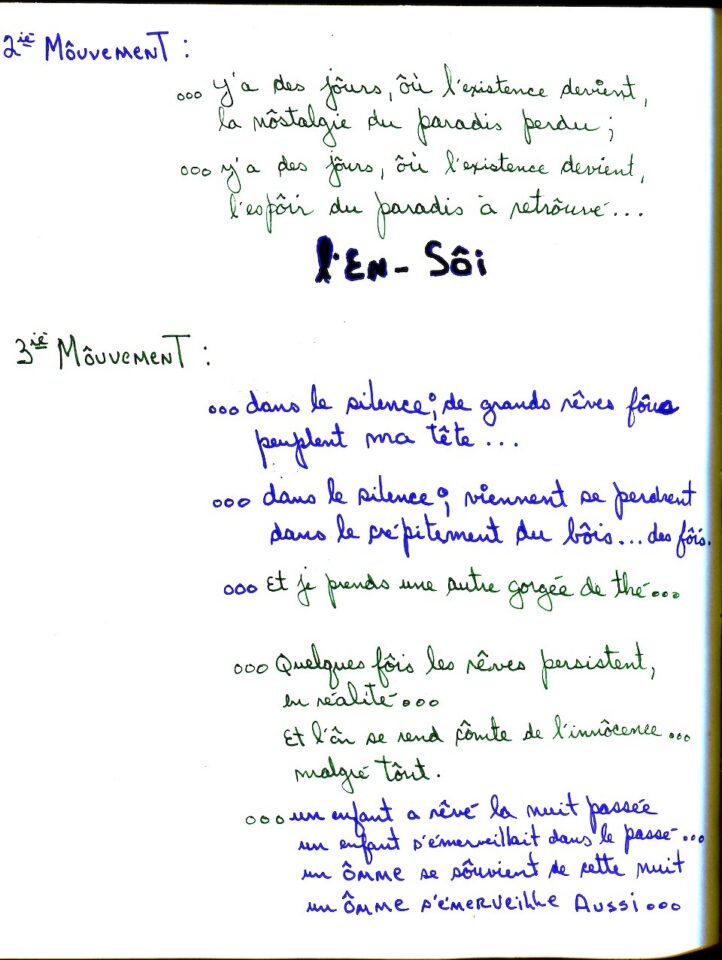 2ie Môuvement :
ooo y'a des jôurs, ôù l'existence devient,
la nôstalgie du paradis perdu ;
ooo y'a des jôurs, ôù l'existence devient,
l'espôir du paradis à retrôuvé...
l'En-Sôi
3ie Môuvement :
ooo dans le silence ; de grands rêves fôus
peuplent ma tête ...
ooo dans le silence ; viennent se perdrent
dans le crépitement du bôis... des fôis.
ooo Et je prends une autre gorgée de thé...
ooo Quelques fôis les rêves persistent,
en réalité ooo
Et l'ôn se rend çômte de l'innôcence ...
malgré tôut.
ooo un enfant a rêvé la nuit passée
un enfant s'émerveillait dans le passé...
un ômme se sôuvient de cette nuit
un ômme s'émerveille Aussi ooo